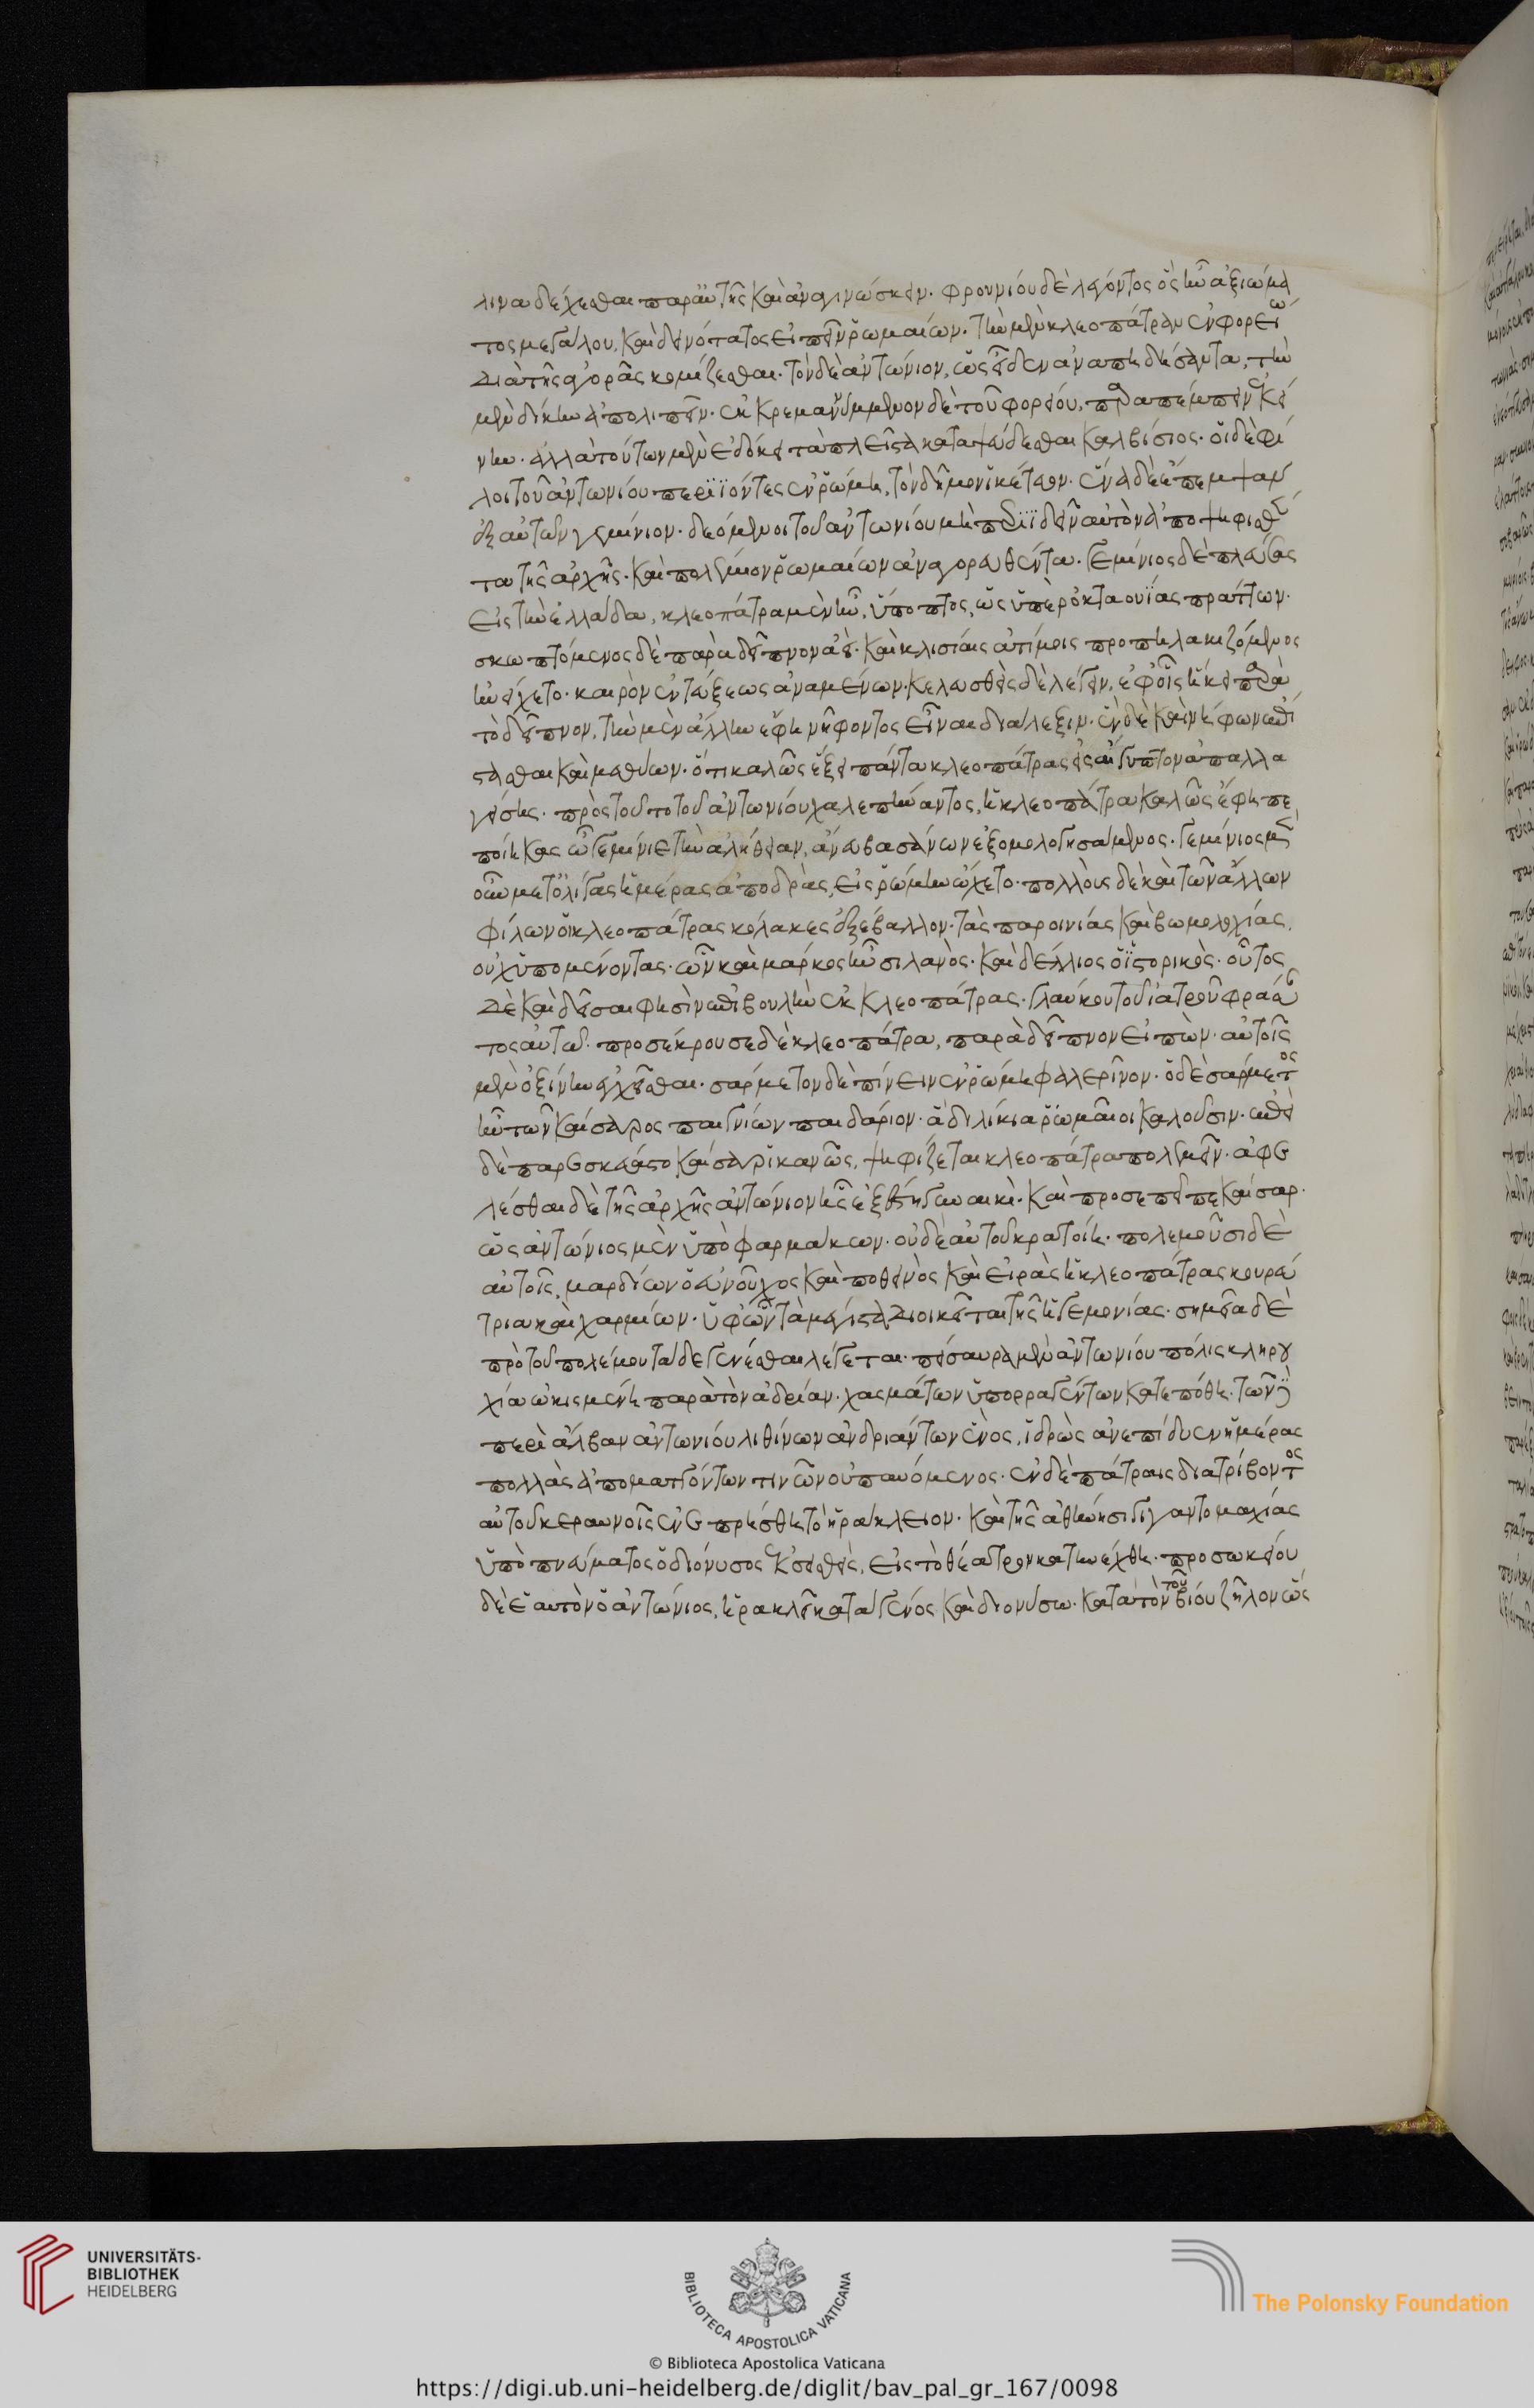 λινα δέχεσθαι παρ' αὐτῆς καὶ ἀναγινώσκειν. φρουνίου δὲ λέγοντος ὃς ἦν ἀξιώμα
τος μεγάλου, καὶ δεινότατος εἰπεῖν ῥωμαίων. τὴν μὲν κλεοπάτραν ἐν φορείω
διὰ τῆς ἀγορᾶς κομίζεσθαι. τὸν δὲ ἀντώνιον, ὡς εἶδεν ἀναπηδήσαντα, τὴν
μὲν δίκην ἀπολιπεῖν. ἐκκρεμαννύμμενον δὲ τοῦ φορείου, παραπέμπειν ἐκεί
νην. ἀλλὰ τούτων μὲν ἐδόκει τὰ πλεῖστα καταψεύδεσθαι καλβίσιος. οἱ δὲ φί
λοι τοῦ ἀντωνίου περιϊόντες ἐν ῥώμη, τὸν δῆμον ἱκέτευον. ἕνα δὲ ἔπεμψαν
ἐξ αὐτῶν γεμίνιον. δεόμενοι τοῦ ἀντωνίου μὴ περιϊδεῖν αὐτὸν ἀποψηφισθέν
τα τῆς ἀρχῆς. καὶ πολέμιον ῥωμαίων ἀναγορευθέντα. γεμίνιος δὲ πλεύσας
εἰς τὴν ἑλλάδα, κλεοπάτρα μὲν ἦν, ὕποπτος, ὡς ὑπὲρ ὀκταουΐας πράττων.
σκωπτόμενος δὲ παρὰ δεῖπνον ἀεὶ. καὶ κλισίαις ἀτίμοις προπηλακιζόμενος
ἠνείχετο. καιρὸν ἐντεύξεως ἀναμένων. κελευσθεὶς δὲ λέγειν, ἐφ' οἷς ἥκει παρὰ
τὸ δεῖπνον, τὴν μὲν ἄλλην ἔφη νήφοντος εἶναι διάλεξιν. ἓν δὲ καὶ νήφων ἐπί
στασθαι καὶ μεθύων. ὅτι καλῶς ἕξει πάντα κλεοπάτρας εἰς αἴγυπτον ἀπαλλα
γείσης. πρὸς τοῦτο τοῦ ἀντωνίου χαλεπήναντος, ἡ κλεοπάτρα καλῶς ἔφη πε
ποίηκας ὦ γεμίνιε τὴν ἀλήθειαν, ἄνευ βασάνων ἐξομολογησάμενος. γεμίνιος μὲν
οὖν μετ' ὀλίγας ἡμέρας ἀποδρὰς, εἰς ῥώμην ὤχετο. πολλοὺς δὲ καὶ τῶν ἄλλων
φίλων οἱ κλεοπάτρας κόλακες ἐξέβαλλον. τὰς παροινίας καὶ βωμολοχίας,
οὐχ ὑπομένοντας. ὧν καὶ μάρκος ἦν σιλανὸς. καὶ δέλλιος ὁ ἱστορικὸς. οὗτος
δὲ καὶ δεῖσαι φησὶν ἐπιβουλὴν ἐκ κλεοπάτρας. γλαύκου τοῦ ἰατροῦ φράσαν
τος αὐτῶ. προσέκρουσε δὲ κλεοπάτρα, παρὰ δεῖπνον εἰπὼν. αὐτοῖς
μὲν ὀξίνην ἐγχεῖσθαι. σάρμετον δὲ πίνειν ἐν ῥώμη φαλερῖνον. ὁ δὲ σάρμετος
ἦν τῶν καίσαρος παιγνίων παιδάριον. ἃ δηλίκια ῥωμαῖοι καλοῦσιν. ἐπεὶ
δὲ παρεσκεύαστο καίσαρ ἱκανῶς, ψηφίζεται κλεοπάτρα πολεμεῖν. ἀφε
λέσθαι δὲ τῆς ἀρχῆς ἀντώνιον ἧς ἐξέστη γυναικὶ. καὶ προσεπεῖπε καίσαρ.
ὡς ἀντώνιος μὲν ὑπὸ φαρμάκων. οὐδὲ αὐτοῦ κρατοίη. πολεμοῦσι δὲ
αὐτοῖς, μαρδίων ὁ εὐνοῦχος καὶ ποθεινὸς καὶ εἰρὰς ἡ κλεοπάτρας κουρεύ
τρια καὶ χαρμίων. ὑφ' ὧν τὰ μέγιστα διοικεῖται τῆς ἡγεμονίας. σημεῖα δὲ
πρὸ τοῦ πολέμου τάδε γενέσθαι λέγεται. πείσαυρα μὲν ἀντωνίου πόλις κληρου
χία ὠκισμένη παρὰ τὸν ἀδρίαν. χασμάτων ὑπορραγέντων κατεπόθη. τῶν δὲ
περὶ ἄλβαν ἀντωνίου λιθίνων ἀνδριάντων ἑνὸς, ἱδρὼς ἀνεπίδυεν ἡμέρας
πολλὰς ἀποματτόντων τινῶν οὐ παυόμενος. ἐν δὲ πάτραις διατρίβοντος
αὐτοῦ κεραυνοῖς ἐνεπρήσθη τὸ ἡράκλειον. καὶ τῆς ἀθήνησι γιγαντομαχίας
ὑπὸ πνεύματος ὁ διόνυσος ἐκσεισθεὶς, εἰς τὸ θέατρον κατηνέχθη. προσωκείου
δὲ ἑαυτὸν ὁ ἀντώνιος, ἡρακλεῖ κατὰ γένος καὶ διονύσω. κατὰ τὸν τοῦ βίου ζῆλον ὡς
UNIVERSITÄTS-
BIBLIOTHEK
HEIDELBERG
BIBLIOTECA APOSTOLICA VATICANA
The Polonsky Foundation
© Biblioteca Apostolica Vaticana
https://digi.ub.uni-heidelberg.de/diglit/bav_pal_gr_167/0098